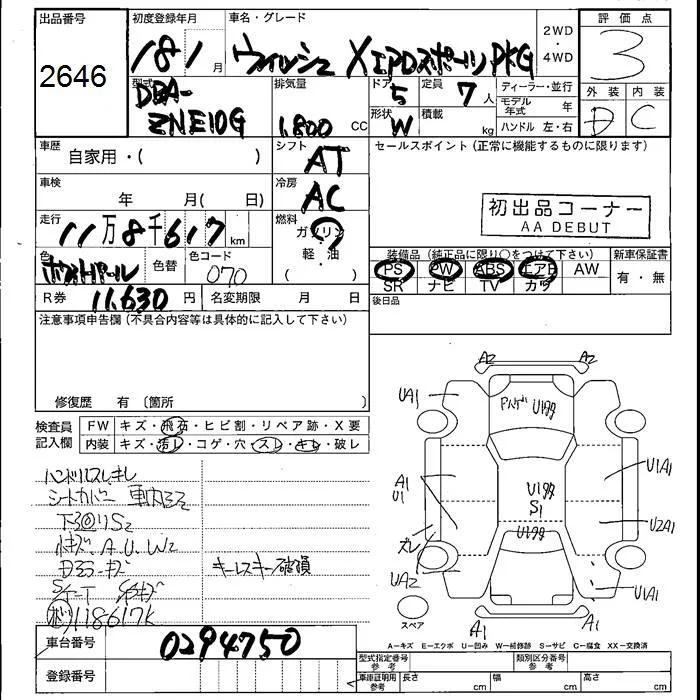 出品番号 初度登録年月 車名・グレード 2WD・4WD 評価点
2646 18 1月 ウィッシュ X エアロスポーツPKG 3
型式 DBA-ZNE10G 排気量 1,800 CC ドア 5 定員 7人 ディーラー・並行 外装 内装
形状 W 積載 kg モデル年式 年 D C
ハンドル 左・右
車歴 自家用・( ) シフト AT セールスポイント(正常に機能するものに限ります)
車検 年 月( 日) 冷房 AC 初出品コーナー
AA DEBUT
走行 11万8千617km 燃料 ガソリン・軽・油
装備品(純正品に限り○をつけて下さい) 新車保証書
色 ホワイトパール 色替 色コード 070 PS PW ABS エアB AW 有・無
SR ナビ TV カワ
R券 11,630円 名変期限 月 日 後日品
注意事項申告欄(不具合内容等は具体的に記入して下さい)
修復歴 有〔箇所 〕
検査員記入欄 FW キズ・飛石・ヒビ割・リペア跡・X要
内装 キズ・汚レ・コゲ・穴・スレ・キレ・破レ
シートカバー 車内
キズ、A.U.W2
キーレスキー破損
118617K
A2 A2
UA1 U1多
A1
U1 U1多
S1 U1A1
U2A1
U1多
スレ
UA2 U1A1
スペア A1 A1
A-キズ E-エクボ U-凹み W-補修跡 S-サビ C-腐食 XX-交換済
車台番号 0294750 型式指定番号参考 類別区分番号参考
登録番号 車庫証明用参考 長さ cm 幅 cm 高さ cm